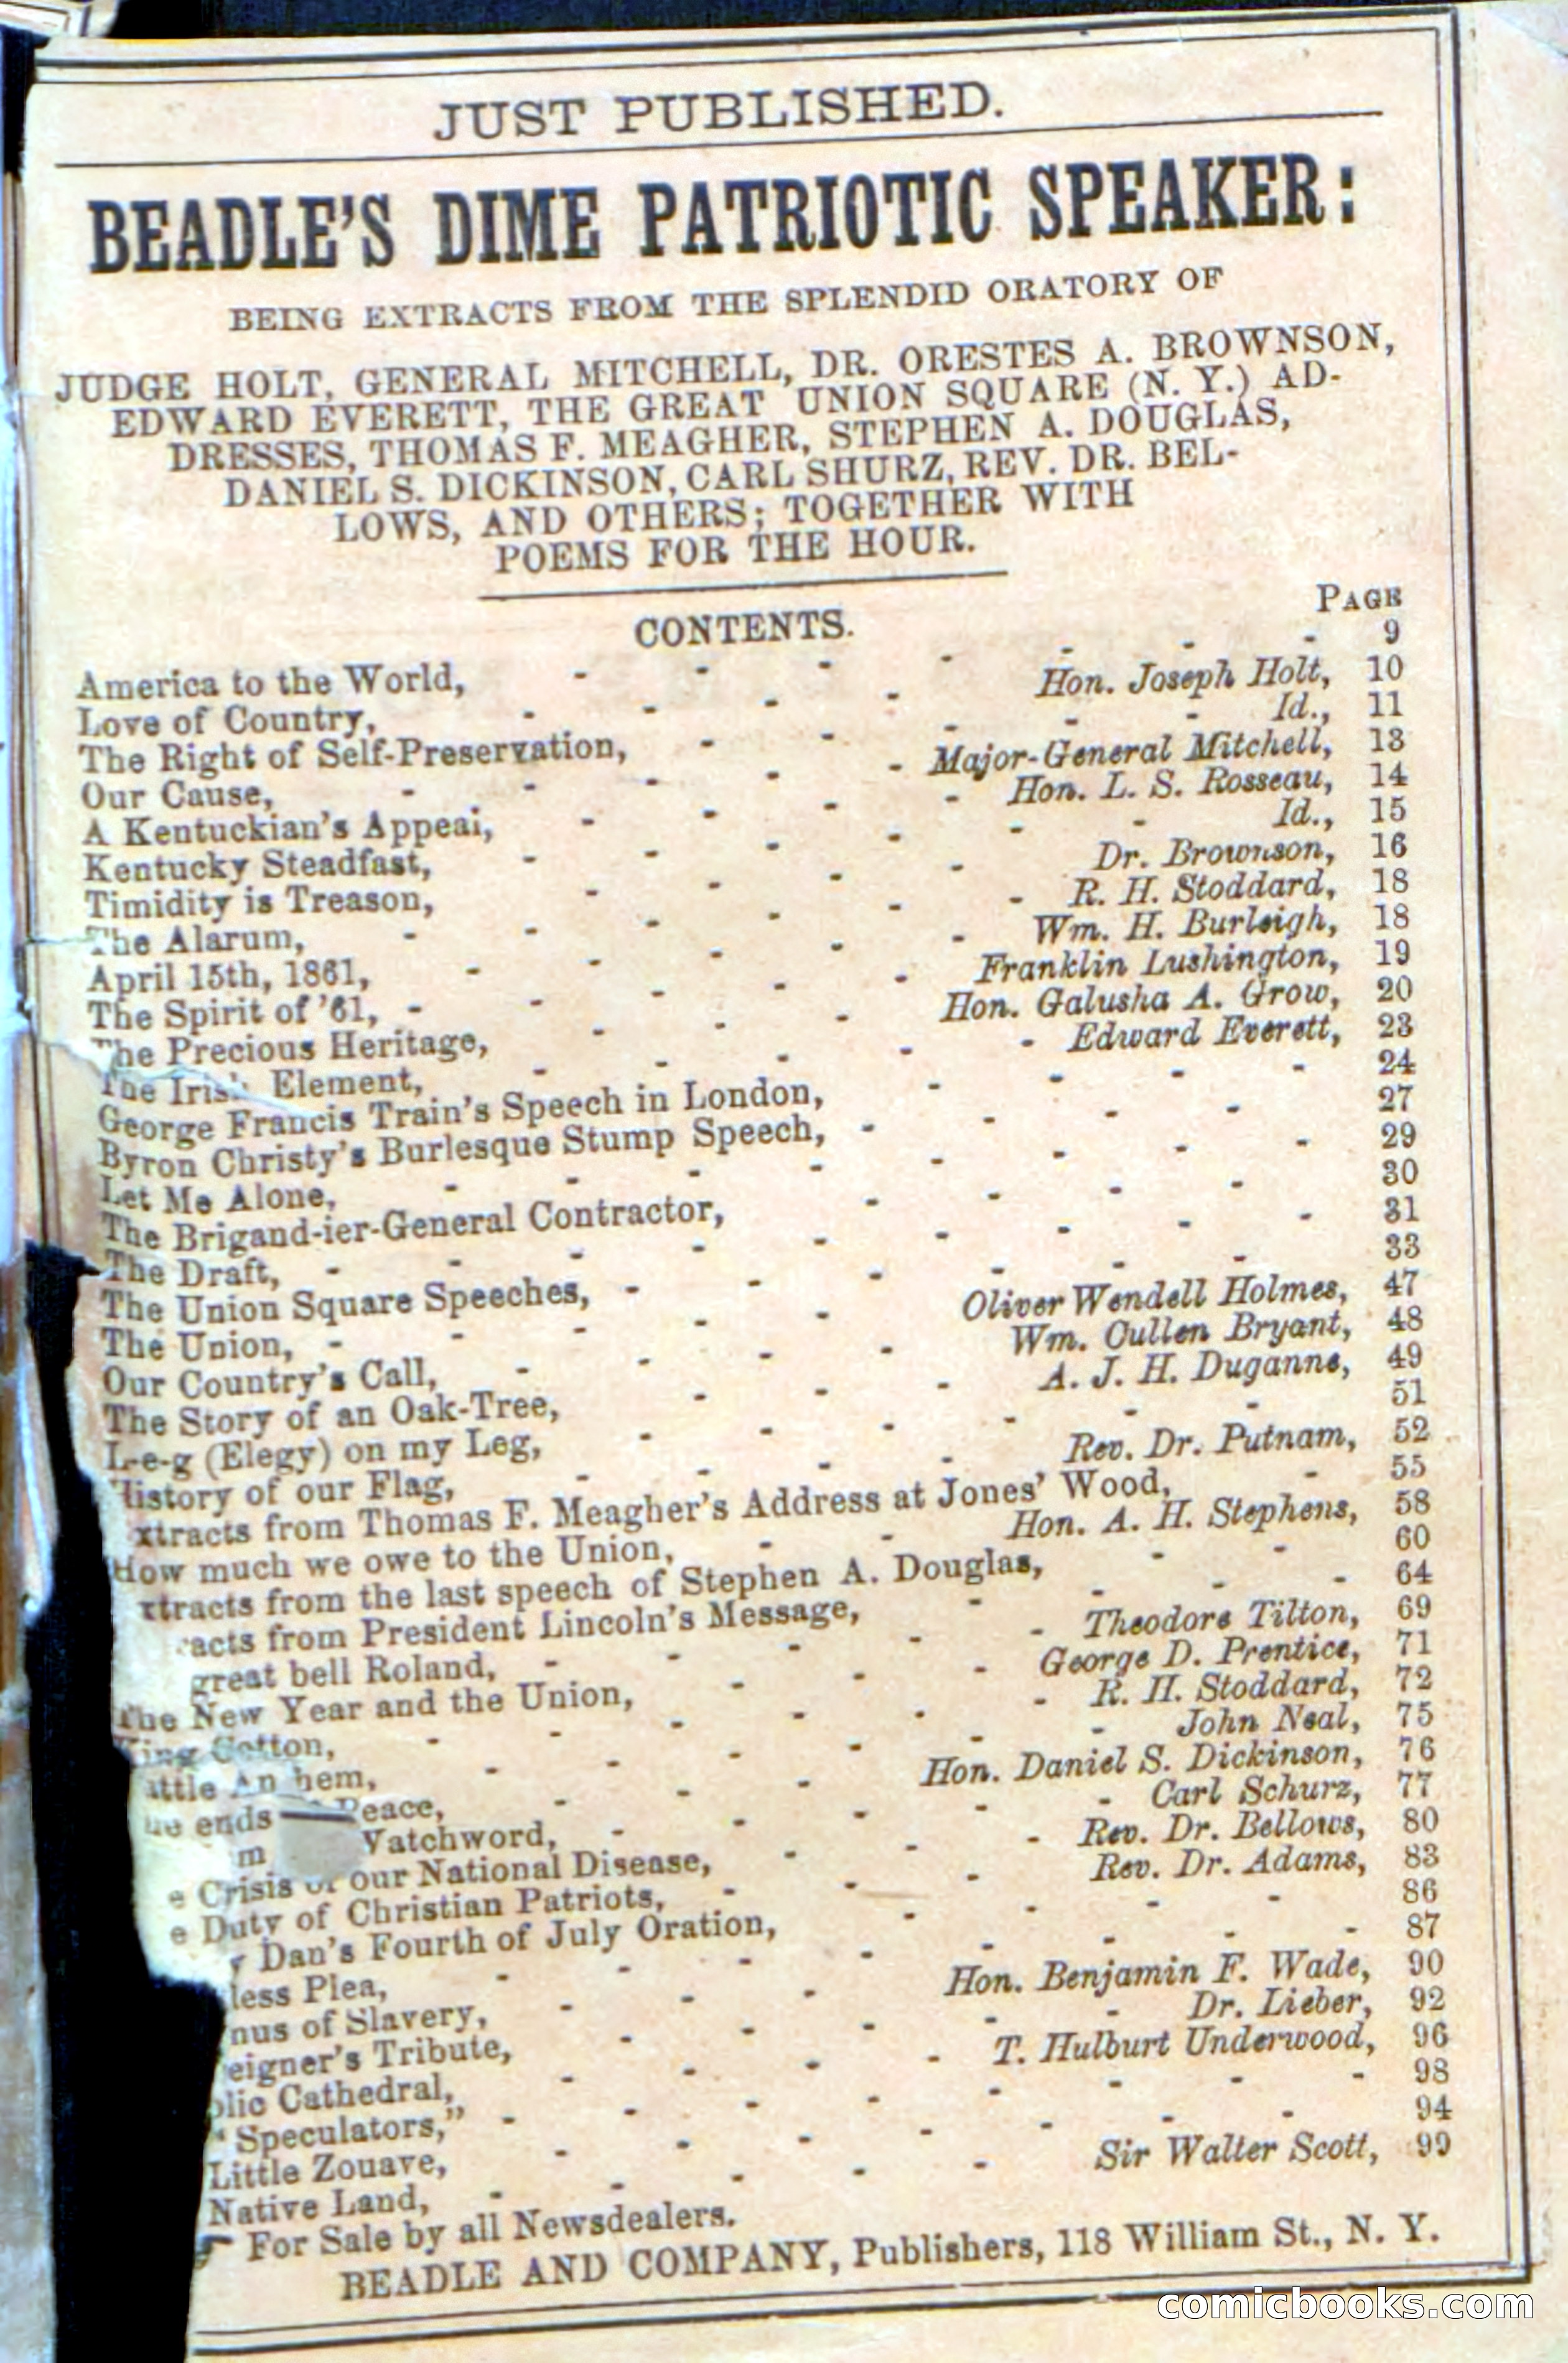 JUST PUBLISHED.
BEADLE'S DIME PATRIOTIC SPEAKER:
BEING EXTRACTS FROM THE SPLENDID ORATORY OF
JUDGE HOLT, GENERAL MITCHELL, DR. ORESTES A. BROWNSON,
EDWARD EVERETT, THE GREAT UNION SQUARE (N. Y.) AD-
DRESSES, THOMAS F. MEAGHER, STEPHEN A. DOUGLAS,
DANIEL S. DICKINSON, CARL SHURZ, REV. DR. BEL-
LOWS, AND OTHERS; TOGETHER WITH
POEMS FOR THE HOUR.
CONTENTS.
PAGE
America to the World, - - - - - - - 9
Love of Country, - - - - Hon. Joseph Holt, 10
The Right of Self-Preservation, - - - - - Id., 11
Our Cause, - - - - - Major-General Mitchell, 13
A Kentuckian's Appeal, - - - - Hon. L. S. Rosseau, 14
Kentucky Steadfast, - - - - - - Id., 15
Timidity is Treason, - - - - Dr. Brownson, 16
The Alarum, - - - - - - R. H. Stoddard, 18
April 15th, 1861, - - - - - Wm. H. Burleigh, 18
The Spirit of '61, - - - - - Franklin Lushington, 19
The Precious Heritage, - - - Hon. Galusha A. Grow, 20
The Irish Element, - - - - - Edward Everett, 23
George Francis Train's Speech in London, - - - - 24
Byron Christy's Burlesque Stump Speech, - - - - 27
Let Me Alone, - - - - - - - - 29
The Brigand-ier-General Contractor, - - - - 30
The Draft, - - - - - - - - - 31
The Union Square Speeches, - - - - - - 33
The Union, - - - - - Oliver Wendell Holmes, 47
Our Country's Call, - - - - Wm. Cullen Bryant, 48
The Story of an Oak-Tree, - - - A. J. H. Duganne, 49
L-e-g (Elegy) on my Leg, - - - - - - 51
History of our Flag, - - - - Rev. Dr. Putnam, 52
xtracts from Thomas F. Meagher's Address at Jones' Wood, - 55
How much we owe to the Union, - - Hon. A. H. Stephens, 58
xtracts from the last speech of Stephen A. Douglas, - - 60
racts from President Lincoln's Message, - - - - 64
great bell Roland, - - - - - Theodore Tilton, 69
The New Year and the Union, - - - George D. Prentice, 71
King Cotton, - - - - - - R. H. Stoddard, 72
attle Anthem, - - - - - - John Neal, 75
ends Peace, - - - Hon. Daniel S. Dickinson, 76
m Watchword, - - - - - Carl Schurz, 77
e Crisis of our National Disease, - - - Rev. Dr. Bellows, 80
e Duty of Christian Patriots, - - Rev. Dr. Adams, 83
Dan's Fourth of July Oration, - - - - 86
less Plea, - - - - - - - - 87
nus of Slavery, - - - Hon. Benjamin F. Wade, 90
eigner's Tribute, - - - - - Dr. Lieber, 92
olic Cathedral, - - - - T. Hulburt Underwood, 96
" Speculators," - - - - - - - - 98
Little Zouave, - - - - - - - 94
Native Land, - - - - - Sir Walter Scott, 99
For Sale by all Newsdealers.
BEADLE AND COMPANY, Publishers, 118 William St., N. Y.
comicbooks.com